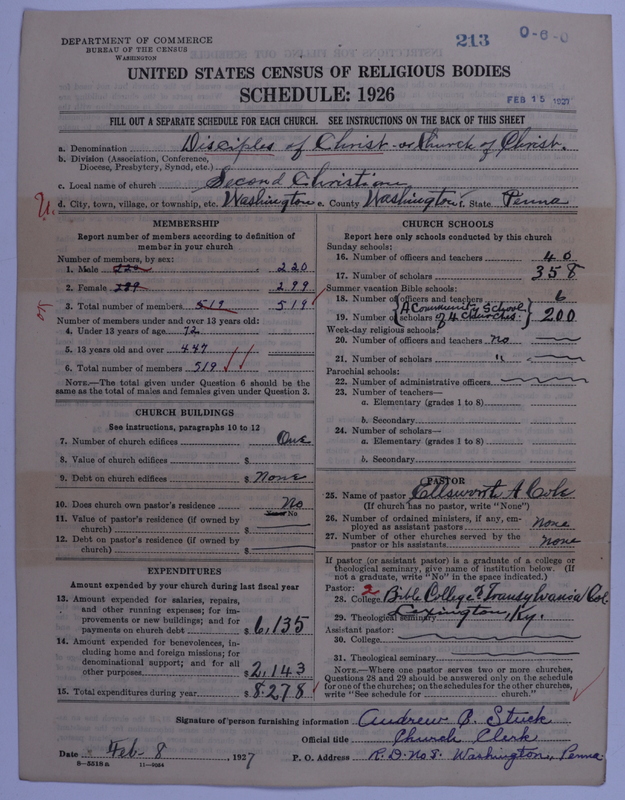 DEPARTMENT OF COMMERCE
BUREAU OF THE CENSUS
WASHINGTON
213
0-6-0
UNITED STATES CENSUS OF RELIGIOUS BODIES
SCHEDULE: 1926
FEB 15 1927
FILL OUT A SEPARATE SCHEDULE FOR EACH CHURCH. SEE INSTRUCTIONS ON THE BACK OF THIS SHEET
a. Denomination Disciples of Christ - or Church of Christ.
b. Division (Association, Conference, Diocese, Presbytery, Synod, etc.)
c. Local name of church Second Christian
d. City, town, village, or township, etc. Washington e. County Washington f. State Penna
MEMBERSHIP
Report number of members according to definition of member in your church
Number of members, by sex:
1. Male 220 220
2. Female 299 299
3. Total number of members 519 519
Number of members under and over 13 years old:
4. Under 13 years of age 72
5. 13 years old and over 447
6. Total number of members 519
NOTE.—The total given under Question 6 should be the same as the total of males and females given under Question 3.
CHURCH BUILDINGS
See instructions, paragraphs 10 to 12
7. Number of church edifices One
8. Value of church edifices $
9. Debt on church edifices $ None
10. Does church own pastor's residence No
Yes or No
11. Value of pastor's residence (if owned by church) $
12. Debt on pastor's residence (if owned by church) $
EXPENDITURES
Amount expended by your church during last fiscal year
13. Amount expended for salaries, repairs, and other running expenses; for improvements or new buildings; and for payments on church debt $ 6,135
14. Amount expended for benevolences, including home and foreign missions; for denominational support; and for all other purposes $ 2,143
15. Total expenditures during year $ 8,278
CHURCH SCHOOLS
Report here only schools conducted by this church
Sunday schools:
16. Number of officers and teachers 40
17. Number of scholars 358
Summer vacation Bible schools:
18. Number of officers and teachers 6
19. Number of scholars A Community School of 4 Churches. 200
Week-day religious schools:
20. Number of officers and teachers no
21. Number of scholars "
Parochial schools:
22. Number of administrative officers
23. Number of teachers—
a. Elementary (grades 1 to 8)
b. Secondary
24. Number of scholars—
a. Elementary (grades 1 to 8)
b. Secondary
PASTOR
25. Name of pastor Ellsworth A Cole
(If church has no pastor, write "None")
26. Number of ordained ministers, if any, employed as assistant pastors none
27. Number of other churches served by the pastor or his assistants none
If pastor (or assistant pastor) is a graduate of a college or theological seminary, give name of institution below. (If not a graduate, write "No" in the space indicated.)
Pastor: 2
28. College Bible College & Transylvania Col.
29. Theological seminary Lexington, Ky.
Assistant pastor:
30. College
31. Theological seminary
NOTE.—Where one pastor serves two or more churches, Questions 28 and 29 should be answered only on the schedule for one of the churches; on the schedules for the other churches, write "See schedule for ........ church."
Signature of person furnishing information Andrew B. Stuck
Official title Church Clerk
Date Feb 8, 1927 P. O. Address R.D. No 5. Washington, Penna.
8-5518a 11-9064